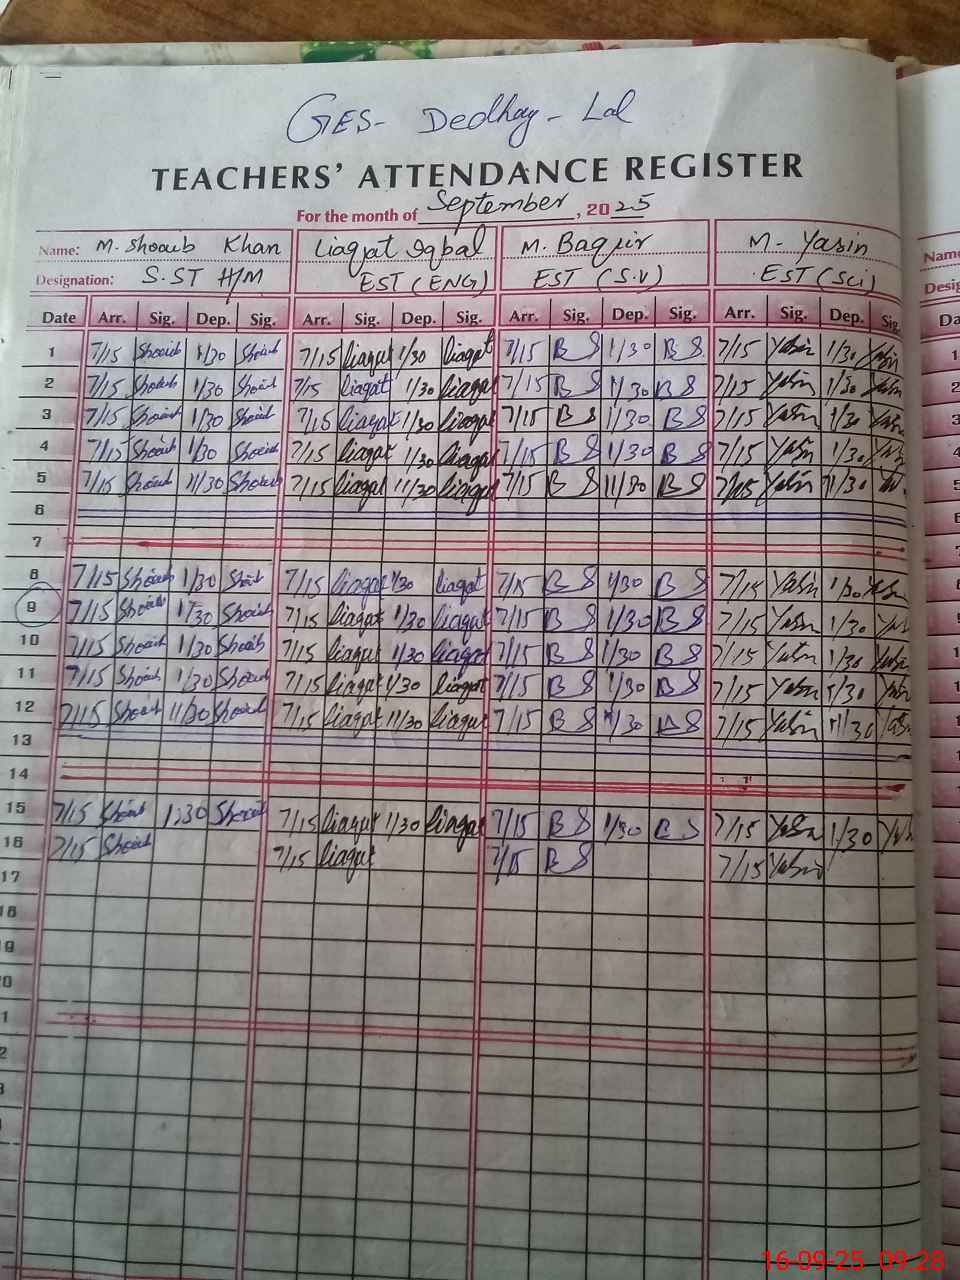 GES- Dedhay - Lal
TEACHERS' ATTENDANCE REGISTER
For the month of September, 2025
Name: M. Shoaib Khan Liaqat Iqbal M. Baqir M. Yasin Name
Designation: S.ST H/M EST (ENG) EST (S.V) EST (Sci) Desig
Date Arr. Sig. Dep. Sig. Arr. Sig. Dep. Sig. Arr. Sig. Dep. Sig. Arr. Sig. Dep. Sig. Da
1 7/15 Shoaib 1/30 Shoaib 7/15 liaqat 1/30 liaqat 7/15 B S 1/30 B S 7/15 Yasin 1/30 Yasin 1
2 7/15 Shoaib 1/30 Shoaib 7/15 liaqat 1/30 liaqat 7/15 B S 1/30 B S 7/15 Yasin 1/30 Yasin 2
3 7/15 Shoaib 1/30 Shoaib 7/15 liaqat 1/30 liaqat 7/15 B S 1/30 B S 7/15 Yasin 1/30 Yasin 3
4 7/15 Shoaib 1/30 Shoaib 7/15 liaqat 1/30 liaqat 7/15 B S 1/30 B S 7/15 Yasin 1/30 Yasin 4
5 7/15 Shoaib 11/30 Shoaib 7/15 liaqat 11/30 liaqat 7/15 B S 11/30 B S 7/15 Yasin 11/30 5
6
7
8 7/15 Shoaib 1/30 Shoaib 7/15 liaqat 1/30 liaqat 7/15 B S 1/30 B S 7/15 Yasin 1/30 Yasin
9 7/15 Shoaib 1/30 Shoaib 7/15 liaqat 1/30 liaqat 7/15 B S 1/30 B S 7/15 Yasin 1/30 Yas
10 7/15 Shoaib 1/30 Shoaib 7/15 liaqat 1/30 liaqat 7/15 B S 1/30 B S 7/15 Yasin 1/30 Yasin
11 7/15 Shoaib 1/30 Shoaib 7/15 liaqat 1/30 liaqat 7/15 B S 1/30 B S 7/15 Yasin 1/30 Yasin
12 7/15 Shoaib 11/30 Shoaib 7/15 liaqat 11/30 liaqat 7/15 B S 11/30 B S 7/15 Yasin 11/30 Yasin
13
14
15 7/15 Shoaib 1:30 Shoaib 7/15 liaqat 1/30 liaqat 7/15 B S 1/30 B S 7/15 Yasin 1/30 Yas
16 7/15 Shoaib 7/15 liaqat 7/15 B S 7/15 Yasin
17
18
9
0
1
2
16-09-25 09:28